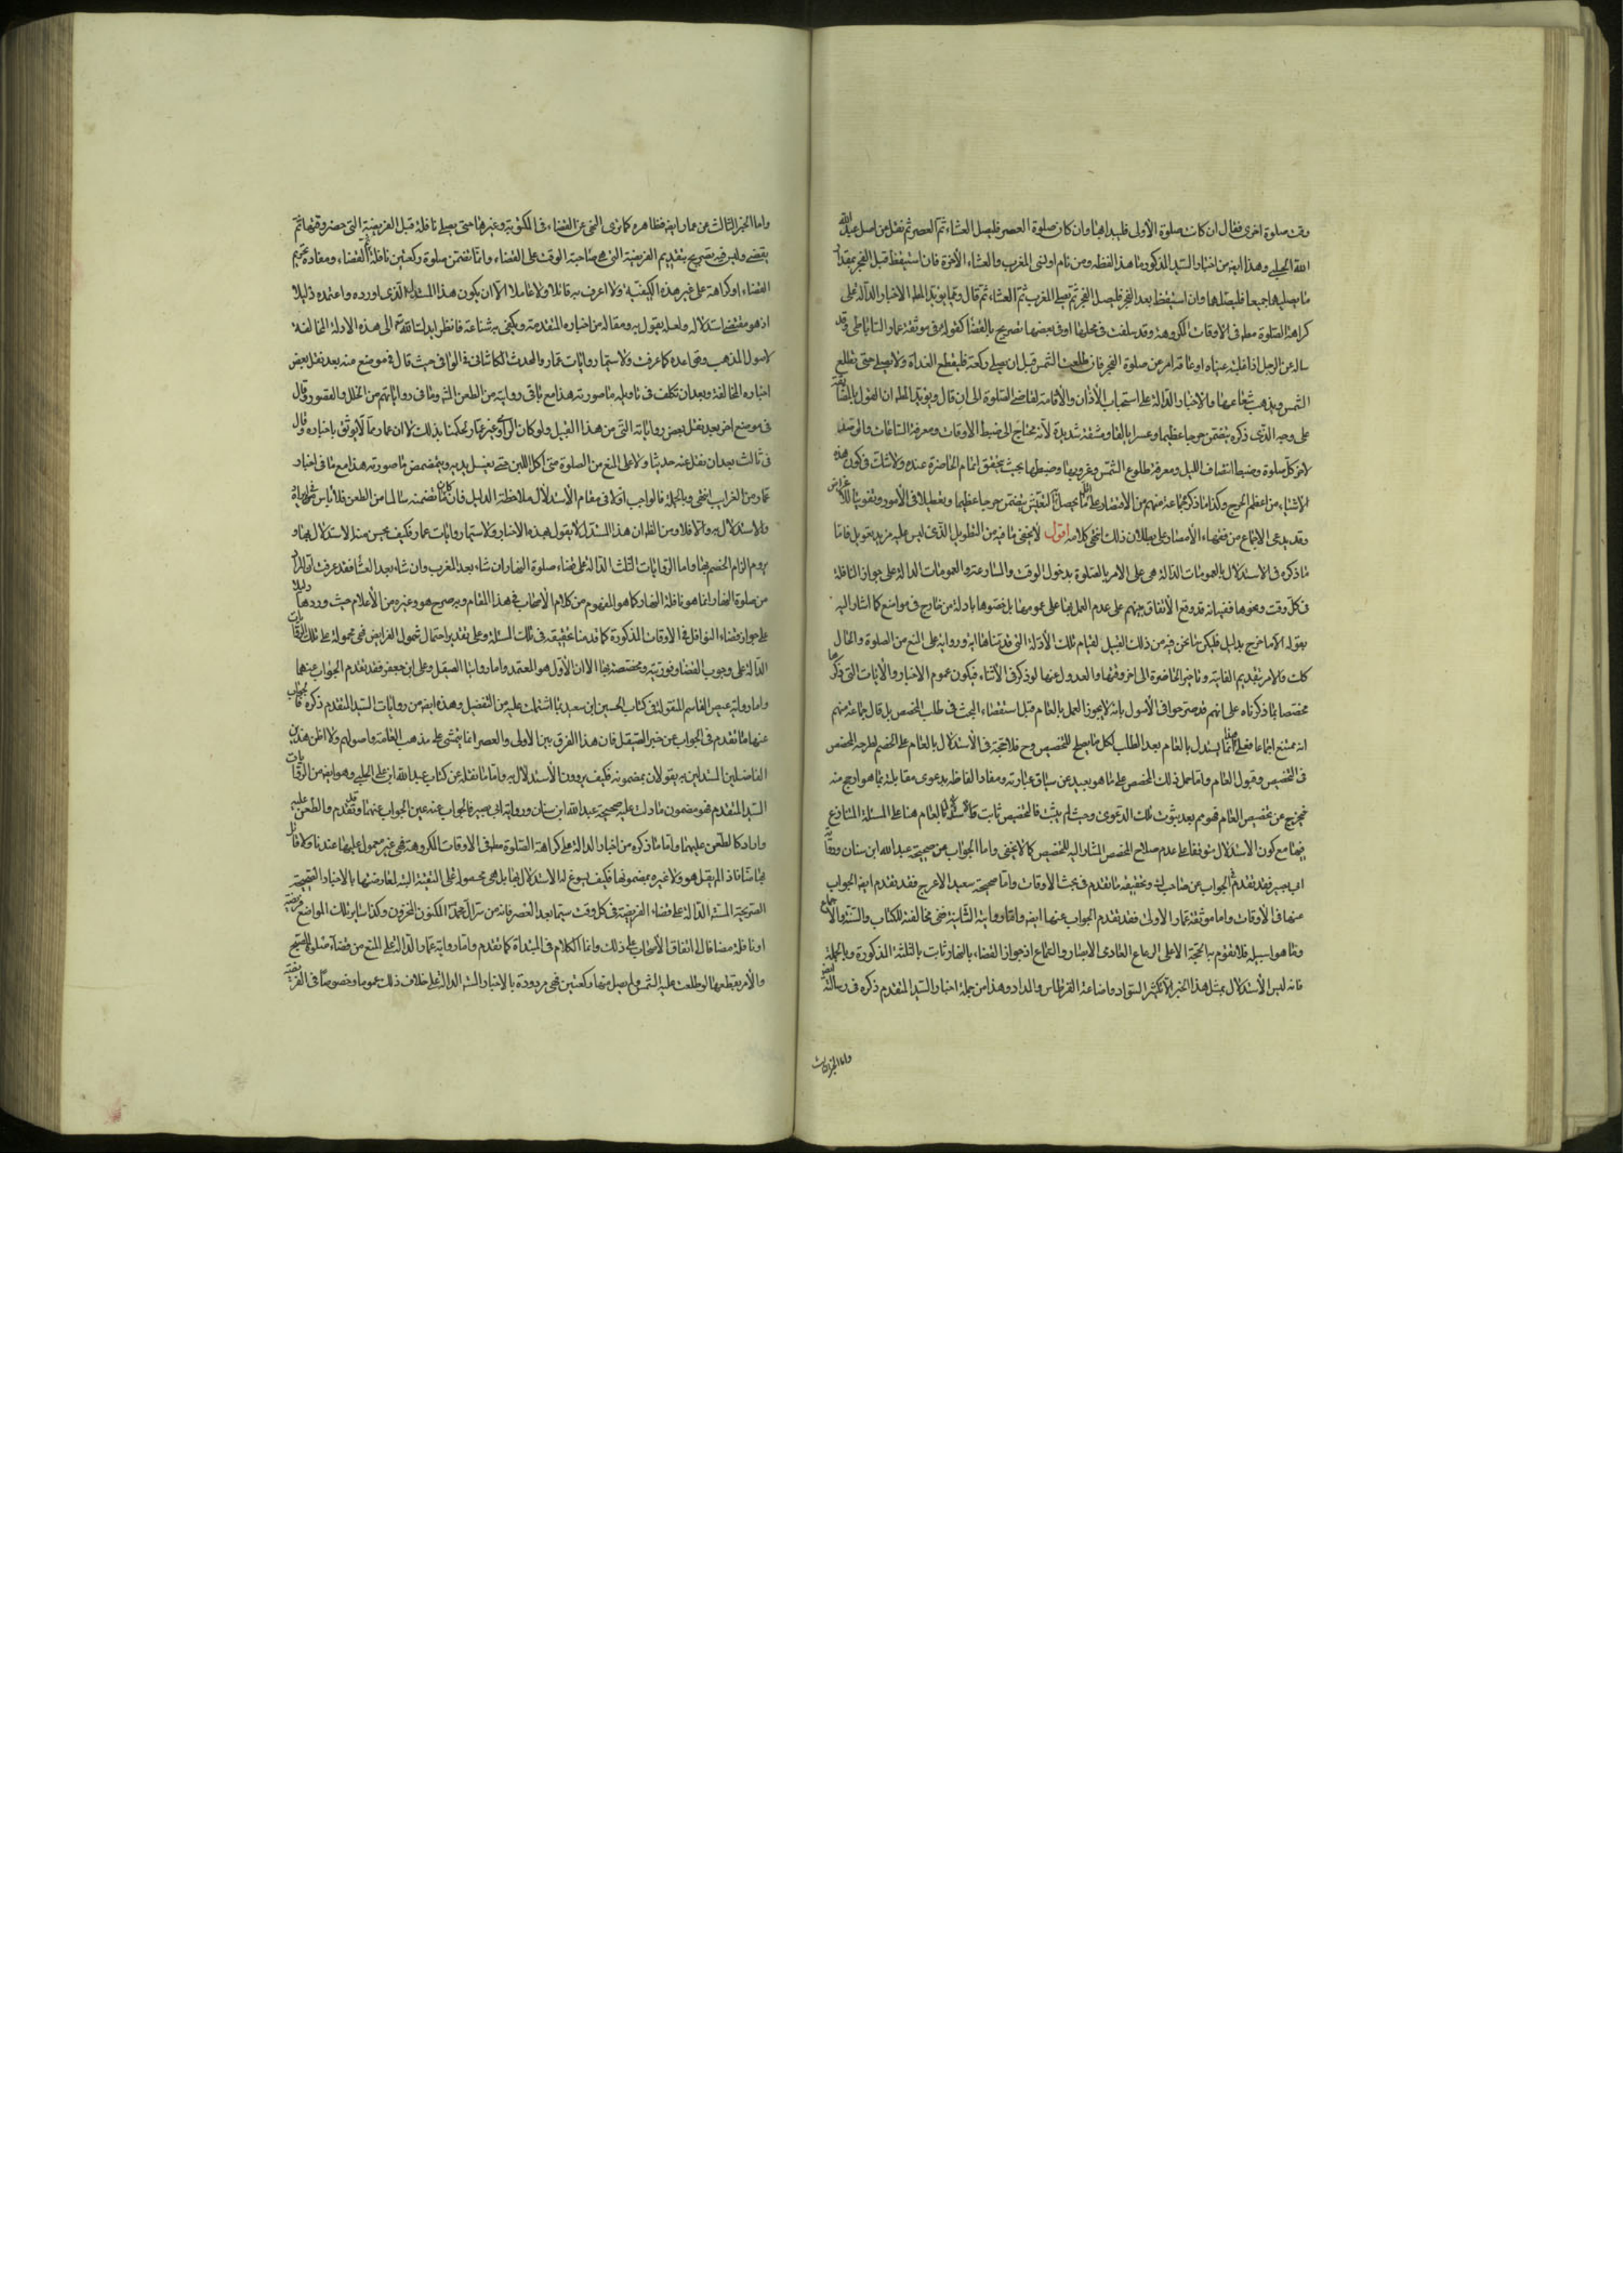 وقت صلوة اخرى فقال ان كانت صلوة الأولى فليبدا بها وان كان صلوة العصر فليصل العشاء ثم العصر ثم نقل من اصل عبيد الله
الله الحلبي وهذا ايضا من اخبار السيد المذكور ما هذا لفظه ومن نام او نسي المغرب والعشاء الأخرة فان استيقظ قبل الفجر بمقدار
ما يصليهما جميعا فليصلهما وان استيقظ بعد الفجر فليصل الفجر ثم يصلي المغرب ثم العشاء ثم قال ومما يؤيد المط الاخبار الدالة على
كراهة الصلوة مط في الاوقات المكروهة وقد سلفت في محلها وفي بعضها تصريح بالقضا كقوله في موثقة عمار الساباطي وقد
ساله عن الرجل اذا غلبته عيناه او عاقه امر عن صلوة الفجر فان طلعت الشمس قبل ان يصلي ركعة فليقطع الغداة ولا يصلي حتى تطلع
الشمس ويذهب شعاعها والاخبار الدالة على استحباب الأذان والأقامة لقاضي الصلوة الى ان قال ويؤيد المط ان القول بالمضايقة
على وجه الذي ذكره يتضمن حرجا عظيما وعسرا بالغا ومشقة شديدة لأنه محتاج الى ضبط الاوقات ومعرفة الساعات والى
لاخر كل صلوة وضبط انتصاف الليل ومعرفة طلوع الشمس وغروبها وضبطها بحيث يتحقق اتمام الحاضرة عنده ولا شك في كون هذه
الاشياء من اعظم الحرج وكذا ما ذكر جماعة منهم من الاقتصار على اقل ما يحصل به التعيش يتضمن حرجا عظيما وتعطيلا في الأمور وتفويتا للاغراض
وقد يدعى الاجماع من فقهاء الأمصار على بطلان ذلك انتهى كلامه اقول لا يخفى ما فيه من التطويل الذي ليس عليه مزيد تعويل فاما
ما ذكره في الاستدلال بالعمومات الدالة هي على الامر بالصلوة بدخول الوقت والمسارعة والعمومات الدالة على جواز النافلة
في كل وقت ونحوها ففيه انه قد وقع الأتفاق منهم على عدم العمل بها على عمومها بل خصوها بادلة من خارج في مواضع كما اشار اليه
بقوله الا ما خرج بدليل فليكن ما نحن فيه من ذلك القبيل لقيام تلك الأدلة التي قدمناها اية ورواية على المنع من الصلوة والحال
كك فالامر بتقديم الفايتة وتاخير الحاضرة الى اخر وقتها والعدول عنها لو ذكر في الأثناء فيكون عموم الاخبار والأيات التي ذكرها
مختصا بما ذكرناه على انهم قد صرحوا في الأصول بانه لا يجوز العمل بالعام قبل استقصاء البحث في طلب المخصص بل قال جماعة منهم
انه ممتنع اجماعا فعلى هذا انما يستدل بالعام بعد الطلب لكل ما يصلح للتخصيص وح فلا حجة في الأستدلال بالعام على الخصم لطرحه المخصص
في التخصيص وقبول العام واما حمل ذلك المخصص على ما هو بعيد عن سياق عبارته ومفاد الفاظه بدعوى مقابلة بما هو ارجح منه
فيخرج عن تخصيص العام فهو مم بعد ثبوت تلك الدعوى وحيث لم يثبت فالتخصيص ثابت بالعام هنا على المسئلة المتنازع
فيها مع كون الاستدلال متوقفا على عدم صلاح المخصص المشار اليه للتخصيص كما لا يخفى واما الجواب عن صحيحة عبد الله ابن سنان ورواية
ابي بصير فقد تقدم الجواب عن صاحب وتحقيقه ما تقدم في بحث الاوقات واما صحيحة سعيد الاعرج فقد تقدم ايضا الجواب
عنها في الأوقات واما موثقة عمار الاولى فقد تقدم الجواب عنها ايضا واما روايته الثانية فهي مخالفة للكتاب والسنة والاجماع
وما هو اسبيله فلا تقوم به الحجة الا على الرعاع العادى الاعتبار والسماع اذ جواز القضاء بالنهار ثابت بالثلثة المذكورة وبالجملة
فانه ليس الأستدلال بمثل هذا الخبر الا تكثير السواد واضاعة القرطاس والمداد وهذا من جملة اخبار السيد المتقدم ذكره في رسالته
واما الخبر الثالث
واما الخبر الثالث عن عمار ايضا فظاهره كما ترى النهي عن القضاء في المكتوبة وغيرها حتى يصلي نافلة قبل الفريضة التي حضر وقتها ثم
يقضي وليس فيه تصريح بتقديم الفريضة التي هي صاحبة الوقت على القضاء وانما تضمن صلوة ركعتين نافلة ثم القضاء ومفاده تحريم
القضاء او كراهته على غير هذه الكيفية ولا اعرف به قائلا ولا عاملا الا ان يكون هذا المستدل به الذي اورده واعتمده دليلا
اذ هو مقتضى استدلاله ولعله يقول به ومقاله من اخباره المتقدمة ويكفي به شناعة فانظر ايدك الله تع الى هذه الادلة المخالفة
لاصول المذهب وقواعده كما عرفت ولا سيما روايات عمار والمحدث الكاشاني في الوافي حيث قال في موضع منه بعد نقل بعض
اخباره المخالفة وبعد ان تكلف في تاويله ما صورته هذا مع ما في روايته من الطعن اشهر وما في رواياتهم من الخلل والقصور وقال
في موضع اخر بعد نقل بعض رواياته التي من هذا القبيل ولو كان الراوى غير عمار لحكمنا بذلك لا ان عمار ممن لا يوثق باخباره وقال
في ثالث بعد ان نقل عنه حديثا دالا على المنع من الصلوة متى اكل اللبن حتى يغسل يديه ويتمضمض ما صورته هذا مع ما في اخبار
عمار من الغرايب انتهى وبالجملة فالواجب اولا في مقام الأستدلال ملاحظة الدليل فان كان ما تضمنه سالما من الطعن فلا باس
والاستدلال به والا فلا ومن الظ ان هذا المستدل لا يقول بهذه الاخبار ولا سيما روايات عمار فكيف يحسن منه الاستدلال بها و
يروم الزام الخصم بها واما الروايات الثلث الدالة على قضاء صلوة النهار ان شاء بعد المغرب وان شاء بعد العشا فقد عرفت ان المراد
من صلوة النهار انما هو نافلة النهار كما هو المفهوم من كلام الأصحاب في هذا المقام وبه صرح هو وغيره من الأعلام حيث وردها دليلا
على جواز قضاء النوافل في الاوقات المذكورة كما قدمنا تحقيقه في تلك المسئلة وعلى تقدير احتمال شمول الفرايض فهي محمولة على تلك الروايات
الدالة على وجوب القضاء وفوريته ومخصصة بها الا ان الأول هو المعتمد واما روايتا الصيقل وعلي ابن جعفر فقد تقدم الجواب عنهما
واما رواية عيص القاسم المنقولة في كتاب الحسين ابن سعيد بما اشتملت عليه من التفصيل وهذه ايضا من روايات السيد المتقدم ذكره فالجواب
عنها ما تقدم في الجواب عن خبر الصيقل فان هذا الفرق بين الاولى والعصر انما يتمشى على مذهب العامة واصولهم ولا اظن هذين
الفاضلين السيدين به يقولان بمضمونه فكيف يرومان الأستدلال به واما ما نقله عن كتاب عبيد الله ابن علي الحلبي وهو ايضا من الروايات
السيد المتقدم فهو مضمون ما دلت عليه صحيحة عبد الله ابن سنان ورواية ابي بصير فالجواب عنه عين الجواب عنهما وقد تقدم والطعن عليه
وارد كالطعن عليهما واما ما ذكره من اخبار الدالة على كراهة الصلوة مط في الاوقات المكروهة فهي غير معمول عليها عندنا ولا قائل
بها منا فاذا لم يقل هو ولا غيره بمضمونها فكيف يسوغ له الاستدلال بها بل هي محمولة على التقية البتة لمعارضتها بالاخبار الصحيحة
الصريحة الدالة على قضاء الفريضة في كل وقت سيما بعد العصر فانه من سر ال محمد المكنون المخزون وكذا ساير تلك المواضع فريضة
او نافلة مضافا الى اتفاق الأصحاب على ذلك وانما الكلام في المبتداة كما تقدم واما رواية عمار الدالة على المنع من قضاء صلوة الصبح
والأمر بقطعها لو طلعت عليه الشمس ولم يصل منها ركعتين فهي مردودة بالاخبار الدالة على خلاف ذلك عموما وخصوصا في الفريضة